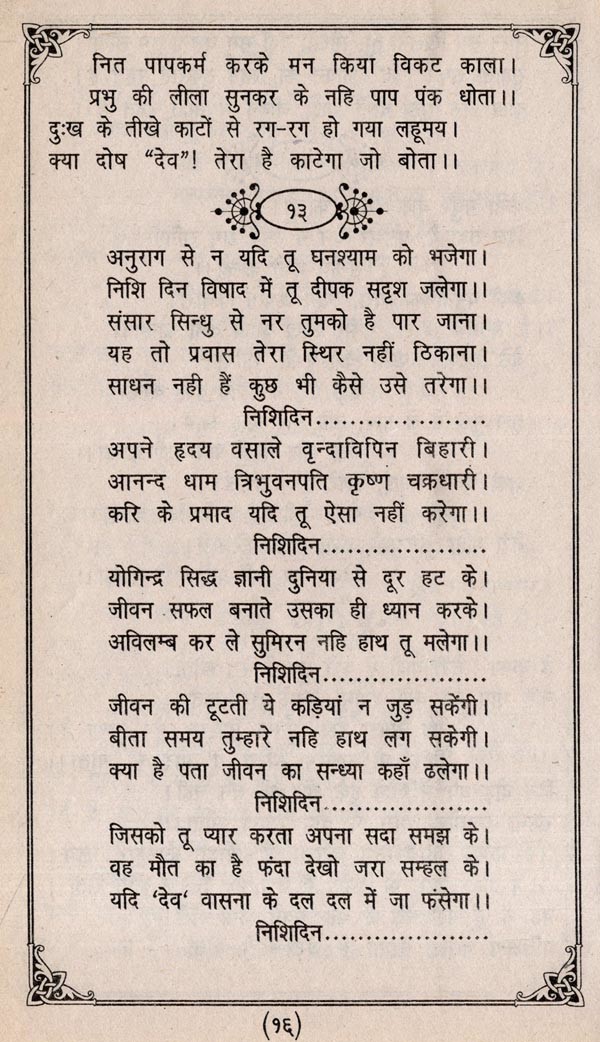 नित पापकर्म करके मन किया विकट काला।
प्रभु की लीला सुनकर के नहि पाप पंक धोता।।
दुःख के तीखे काटों से रग-रग हो गया लहूमय।
क्या दोष “देव”! तेरा है काटेगा जो बोता।।
१३
अनुराग से न यदि तू घनश्याम को भजेगा।
निशि दिन विषाद में तू दीपक सदृश जलेगा।।
संसार सिन्धु से नर तुमको है पार जाना।
यह तो प्रवास तेरा स्थिर नहीं ठिकाना।
साधन नही हैं कुछ भी कैसे उसे तरेगा।।
निशिदिन....................
अपने हृदय वसाले वृन्दाविपिन बिहारी।
आनन्द धाम त्रिभुवनपति कृष्ण चक्रधारी।
करि के प्रमाद यदि तू ऐसा नहीं करेगा।।
निशिदिन...................
योगिन्द्र सिद्ध ज्ञानी दुनिया से दूर हट के।
जीवन सफल बनाते उसका ही ध्यान करके।
अविलम्ब कर ले सुमिरन नहि हाथ तू मलेगा।।
निशिदिन...................
जीवन की टूटती ये कड़ियां न जुड़ सकेंगी।
बीता समय तुम्हारे नहि हाथ लग सकेगी।
क्या है पता जीवन का सन्ध्या कहाँ ढलेगा।।
निशिदिन...................
जिसको तू प्यार करता अपना सदा समझ के।
वह मौत का है फंदा देखो जरा सम्हल के।
यदि ‘देव‘ वासना के दल दल में जा फंसेगा।।
निशिदिन...................
(१६)